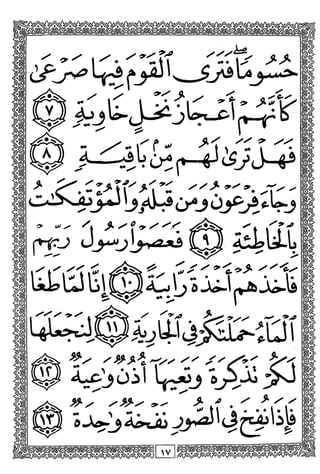 حُسُومًاۖ فَتَرَى ٱلْقَوْمَ فِيهَا صَرْعَىٰ
كَأَنَّهُمْ أَعْجَازُ نَخْلٍ خَاوِيَةٍ ٧
فَهَلْ تَرَىٰ لَهُم مِّنۢ بَاقِيَةٍ ٨
وَجَآءَ فِرْعَوْنُ وَمَن قَبْلَهُۥ وَٱلْمُؤْتَفِكَـٰتُ
بِٱلْخَاطِئَةِ ٩ فَعَصَوْا۟ رَسُولَ رَبِّهِمْ
فَأَخَذَهُمْ أَخْذَةً رَّابِيَةً ١٠ إِنَّا لَمَّا طَغَا
ٱلْمَآءُ حَمَلْنَـٰكُمْ فِى ٱلْجَارِيَةِ ١١ لِنَجْعَلَهَا
لَكُمْ تَذْكِرَةً وَتَعِيَهَآ أُذُنٌ وَٰعِيَةٌ ١٢
فَإِذَا نُفِخَ فِى ٱلصُّورِ نَفْخَةٌ وَٰحِدَةٌ ١٣
١٧